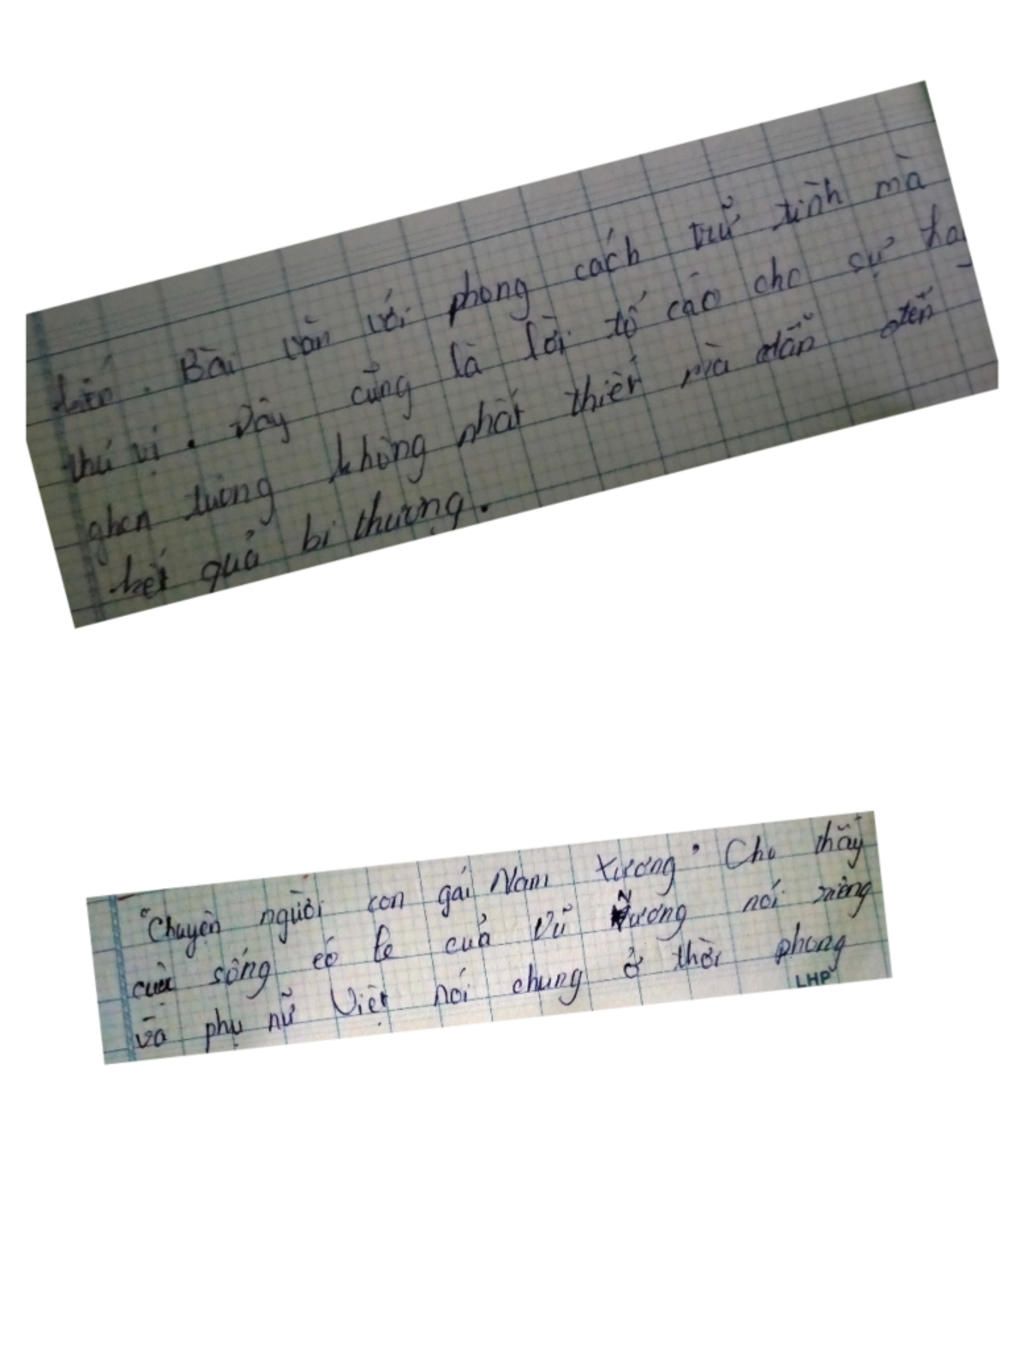 kiến. Bài văn với phong cách trữ tình mà
thú vị. Đây cũng là lời tố cáo cho sự ha
ghen tuông không nhất thiết mà dẫn đến
kết quả bi thương.
"Chuyện người con gái Nam Xương" Cho thấy
cuộc sống éo le của Vũ Nương nói riêng
và phụ nữ Việt nói chung ở thời phong
LHP